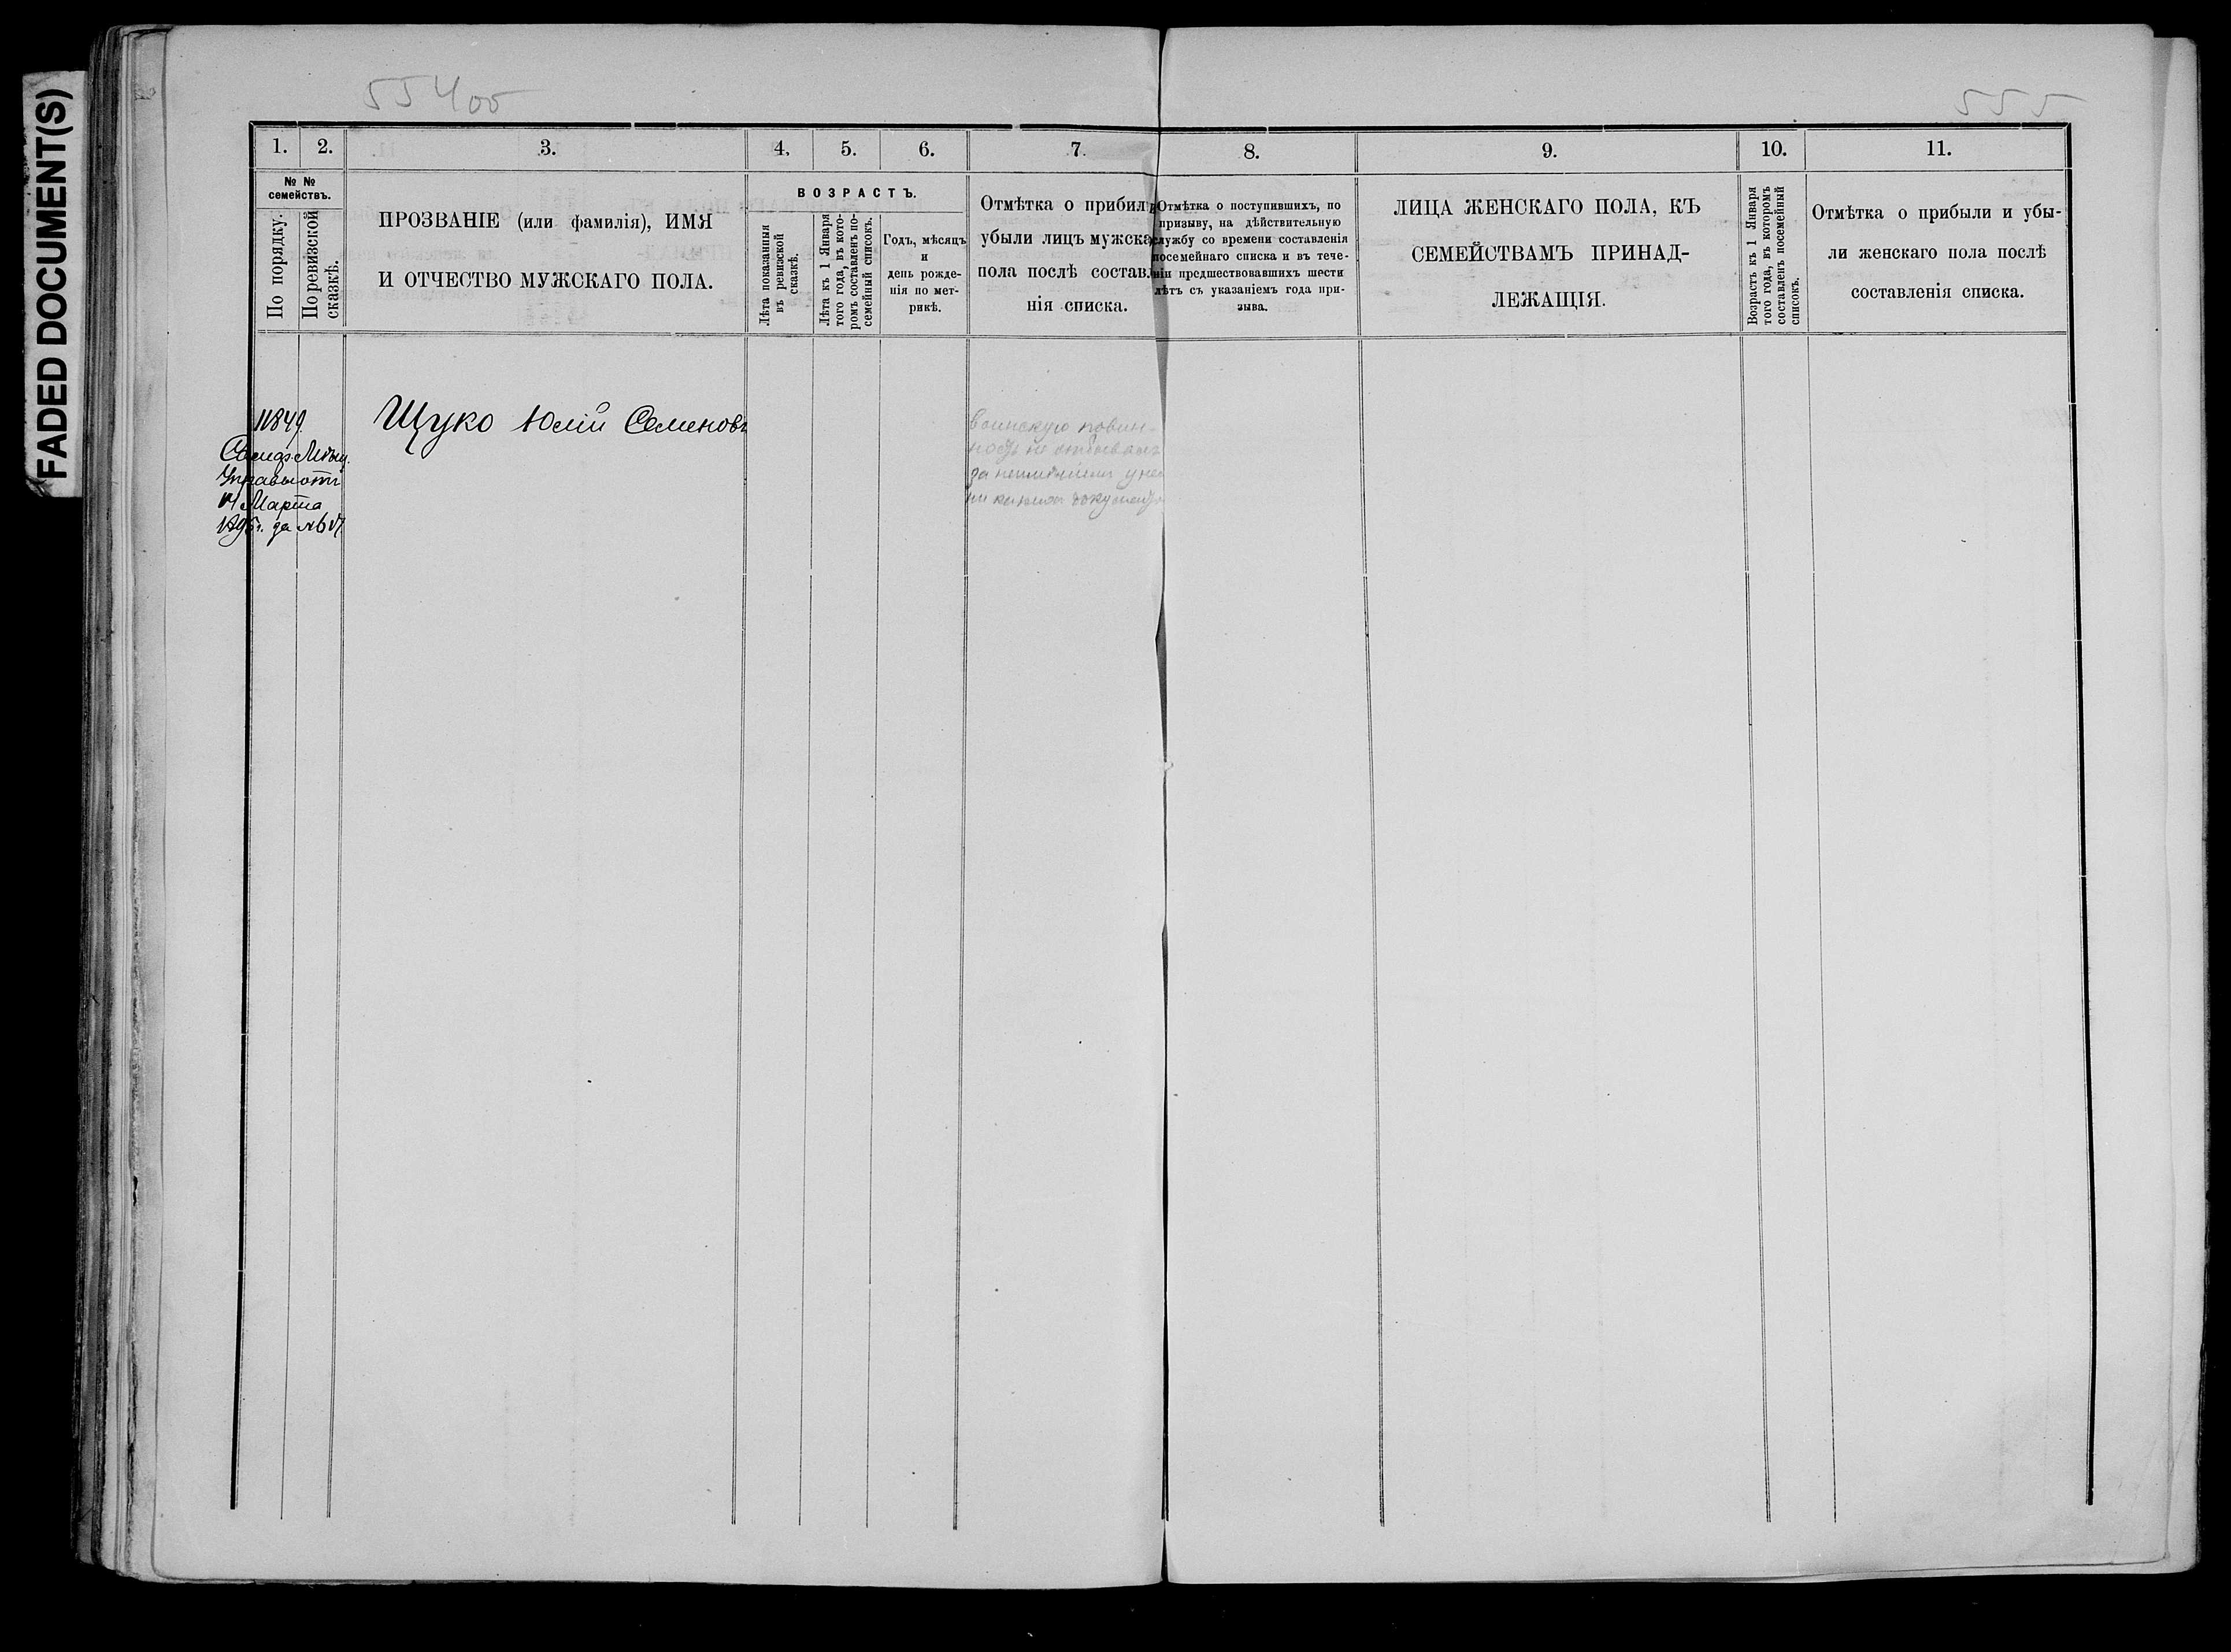 FADED DOCUMENT(S)
554об
555
1.
2.
3.
4.
5.
6.
7.
8.
9.
10.
11.
№ №
семействъ.
По порядку.
По ревизской
сказкѣ.
ПРОЗВАНІЕ (или фамилія), ИМЯ
И ОТЧЕСТВО МУЖСКАГО ПОЛА.
ВОЗРАСТЪ.
Лѣта показанныя
въ ревизской
сказкѣ.
Лѣта къ 1 Января
того года, въ кото-
ромъ составленъ по-
семейный списокъ.
Годъ, мѣсяцъ
и
день рожде-
нія по мет-
рикѣ.
Отмѣтка о прибил
убыли лицъ мужска
пола послѣ составл
нія списка.
Отмѣтка о поступившихъ, по
призыву, на дѣйствительную
службу со времени составленія
посемейнаго списка и въ тече-
ніи предшествовавшихъ шести
лѣтъ съ указаніемъ года при-
зыва.
ЛИЦА ЖЕНСКАГО ПОЛА, КЪ
СЕМЕЙСТВАМЪ ПРИНАД-
ЛЕЖАЩІЯ.
Возрастъ къ 1 Января
того года, въ которомъ
составленъ посемейный
списокъ.
Отмѣтка о прибыли и убы-
ли женскаго пола послѣ
составленія списка.
11849.
Управы отъ
14 Марта
1895г. за №
Щуко Юлій Семеновъ
Воинскую повин-
ность не отбывалъ
за неимѣніемъ у не